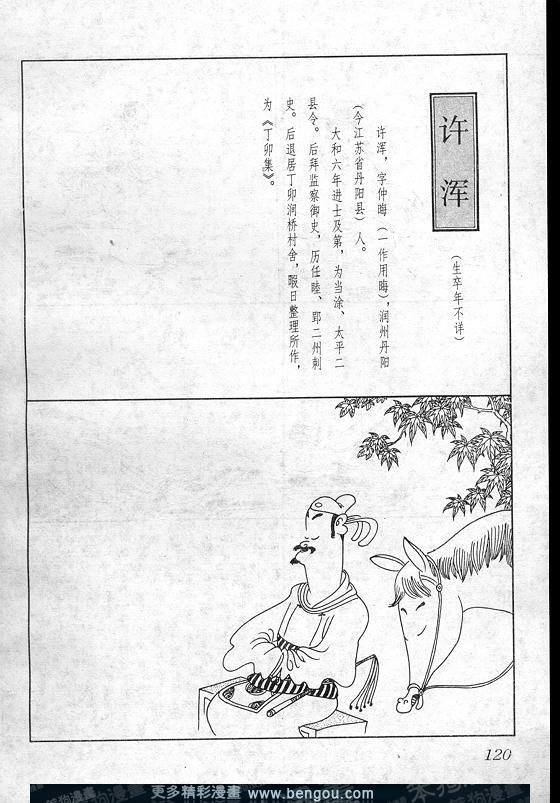 许浑
(生卒年不详)
许浑，字仲晦(一作用晦)，润州丹阳
(今江苏省丹阳县)人。
大和六年进士及第，为当涂、太平二
县令。后拜监察御史，历任睦、郢二州刺
史。后退居丁卯涧桥村舍，暇日整理所作，
为《丁卯集》。
120
更多精彩漫畫 www.bengou.com